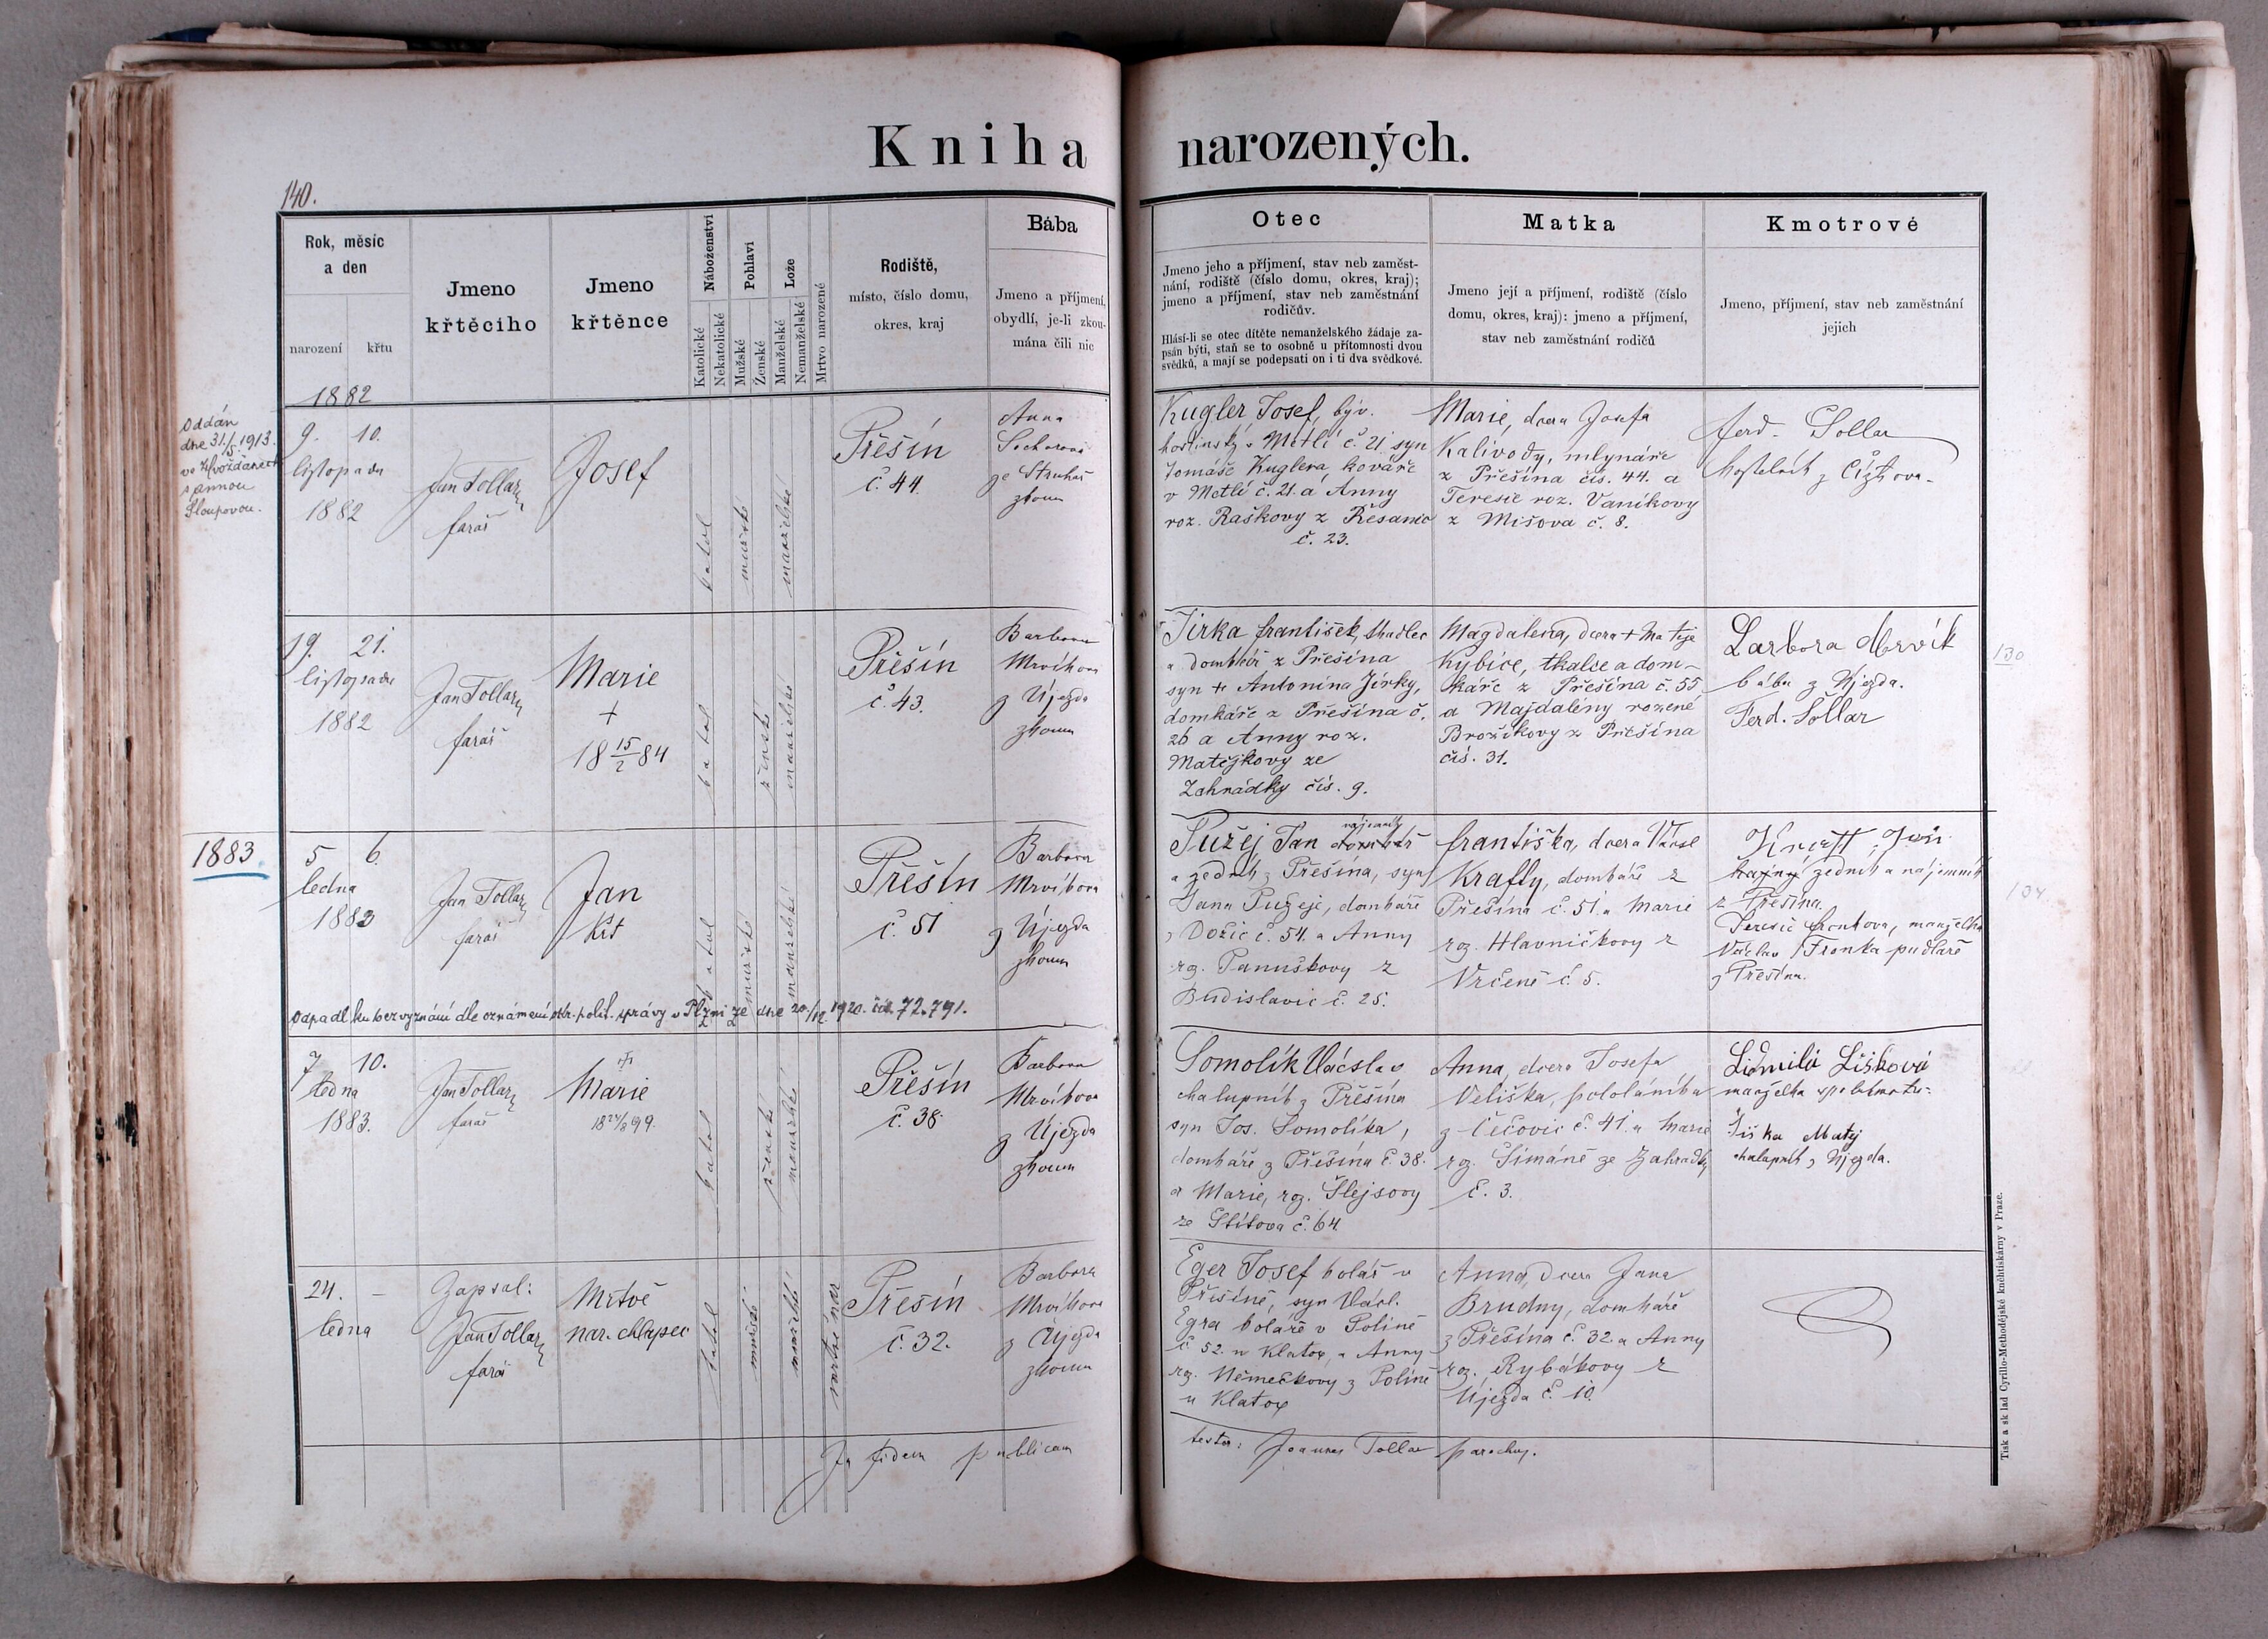 Kniha narozených.
140.
Rok, měsíc
a den
narození
křtu
Jmeno
křtěcího
Jmeno
křtěnce
Náboženství
Katolické
Nekatolické
Pohlaví
Mužské
Ženské
Lože
Manželské
Nemanželské
Mrtvo narozené
Rodiště,
místo, číslo domu,
okres, kraj
Bába
Jmeno a příjmení,
obydlí, je-li zkou-
mána čili nic
Otec
Jmeno jeho a příjmení, stav neb zaměst-
nání, rodiště (číslo domu, okres, kraj);
jmeno a příjmení, stav neb zaměstnání
rodičův.
Hlásí-li se otec dítěte nemanželského žádaje za-
psán býti, staň se to osobně u přítomnosti dvou
svědků, a mají se podepsati on i ti dva svědkové.
Matka
Jmeno její a příjmení, rodiště (číslo
domu, okres, kraj): jmeno a příjmení,
stav neb zaměstnání rodičů
Kmotrové
Jmeno, příjmení, stav neb zaměstnání
jejich
1882
Oddán
dne 31./5. 1913.
ve Hvožďanech
s Annou
Sloupovou.
9. 10.
listopadu
1882
Jan Tollar
farář
Josef
katol
mužské
manželské
Přešín
č. 44.
Anna
ze Struhař
zkoum
Kugler Josef, býv.
hostinský v Metlí č. 21 syn
Tomáše Kuglera, kováře
v Metlí č. 21. a Anny
roz. Raškovy z Řesanic
č. 23.
Marie, dcera Josefa
Kalivody, mlynáře
z Přešína čís. 44. a
Teresie roz. Vaníkovy
z Mišova č. 8.
Ferd. Sollar
19. 21.
listopadu
1882
Jan Tollar
farář
Marie
+
18 15/2 84
katol
ženské
manželské
Přešín
č. 43.
Barbora
Mrvíkova
z Újezda
zkoum
Jírka František,
a domkář z Přešína
syn + Antonína Jírky,
domkáře z Přešína č.
26 a Anny roz.
Matějkovy ze
Zahrádky čís. 9.
Magdalena, dcera + Matěje
Kybice, tkalce a dom-
káře z Přešína č. 55
a Majdalény rozené
Brožíkovy z Přešína
čís. 31.
Barbora Mrvík
bába z Újezda.
Ferd. Sollar
130
1883
5 6.
ledna
1883
Jan Tollar
farář
Jan
Kř
katol
mužské
manželské
Přešín
č. 51
Barbora
Mrvíkova
z Újezda
zkoum
Pužej Jan domkář
nájemník
a zedník z Přešína, syn
Jana Pužeje, domkáře
z Dožic č. 54. a Anny
roz. Panuškovy z
Budislavic č. 25.
Františka, dcera Václ
Krafty, domkáře z
Přešína č. 51. a Marie
roz. Hlavničkovy z
Vrčeně č. 5.
Kraft Jan
zedník a nájemník
z Přešína.
manželka
Václava Tronka pudláře
z Přešína.
134
Odpadl ku bezvyznání dle oznámení okr. polit. správy v Plzni ze dne 20./12. 1920. čís. 72.791.
7 10.
ledna
1883.
Jan Tollar
farář
+
Marie
18 24/8 99.
katol
ženské
manželské
Přešín
č. 38
Barbora
Mrvíkova
z Újezda
zkoum
Somolík Václav
chalupník z Přešína
syn Jos. Somolíka,
domkáře z Přešína č. 38.
a Marie, roz. Šlejsovy
ze Štítova č. 64.
Anna, dcera Josefa
Veliška, pololáníka
z Čečovic č. 41. a Marie
roz. Šimáně ze Zahrádky
č. 3.
Lidmila Lišková
manželka spolukmotra:
Liška Matěj
chalupník z Újezda.
24. –
ledna
Zapsal:
Jan Tollar
farář
Mrtvě
nar. chlapec
katol
mužské
manželské
mrtvě nar
Přešín
č. 32.
Barbora
Mrvíkova
z Újezda
zkoum
Eger Josef kolář v
Přešíně, syn Václ.
Egra koláře v Polině
č. 52. u Klatov, a Anny
roz. Němečkovy z Polině
u Klatov
Anna, dcera Jana
Brudny, domkáře
z Přešína č. 32. a Anny
roz. Rybákovy z
Újezda č. 10.
In fidem publicam
testor: Joannes Tollar parochus.
Tisk a sklad Cyrillo-Methodějské knihtiskárny v Praze.